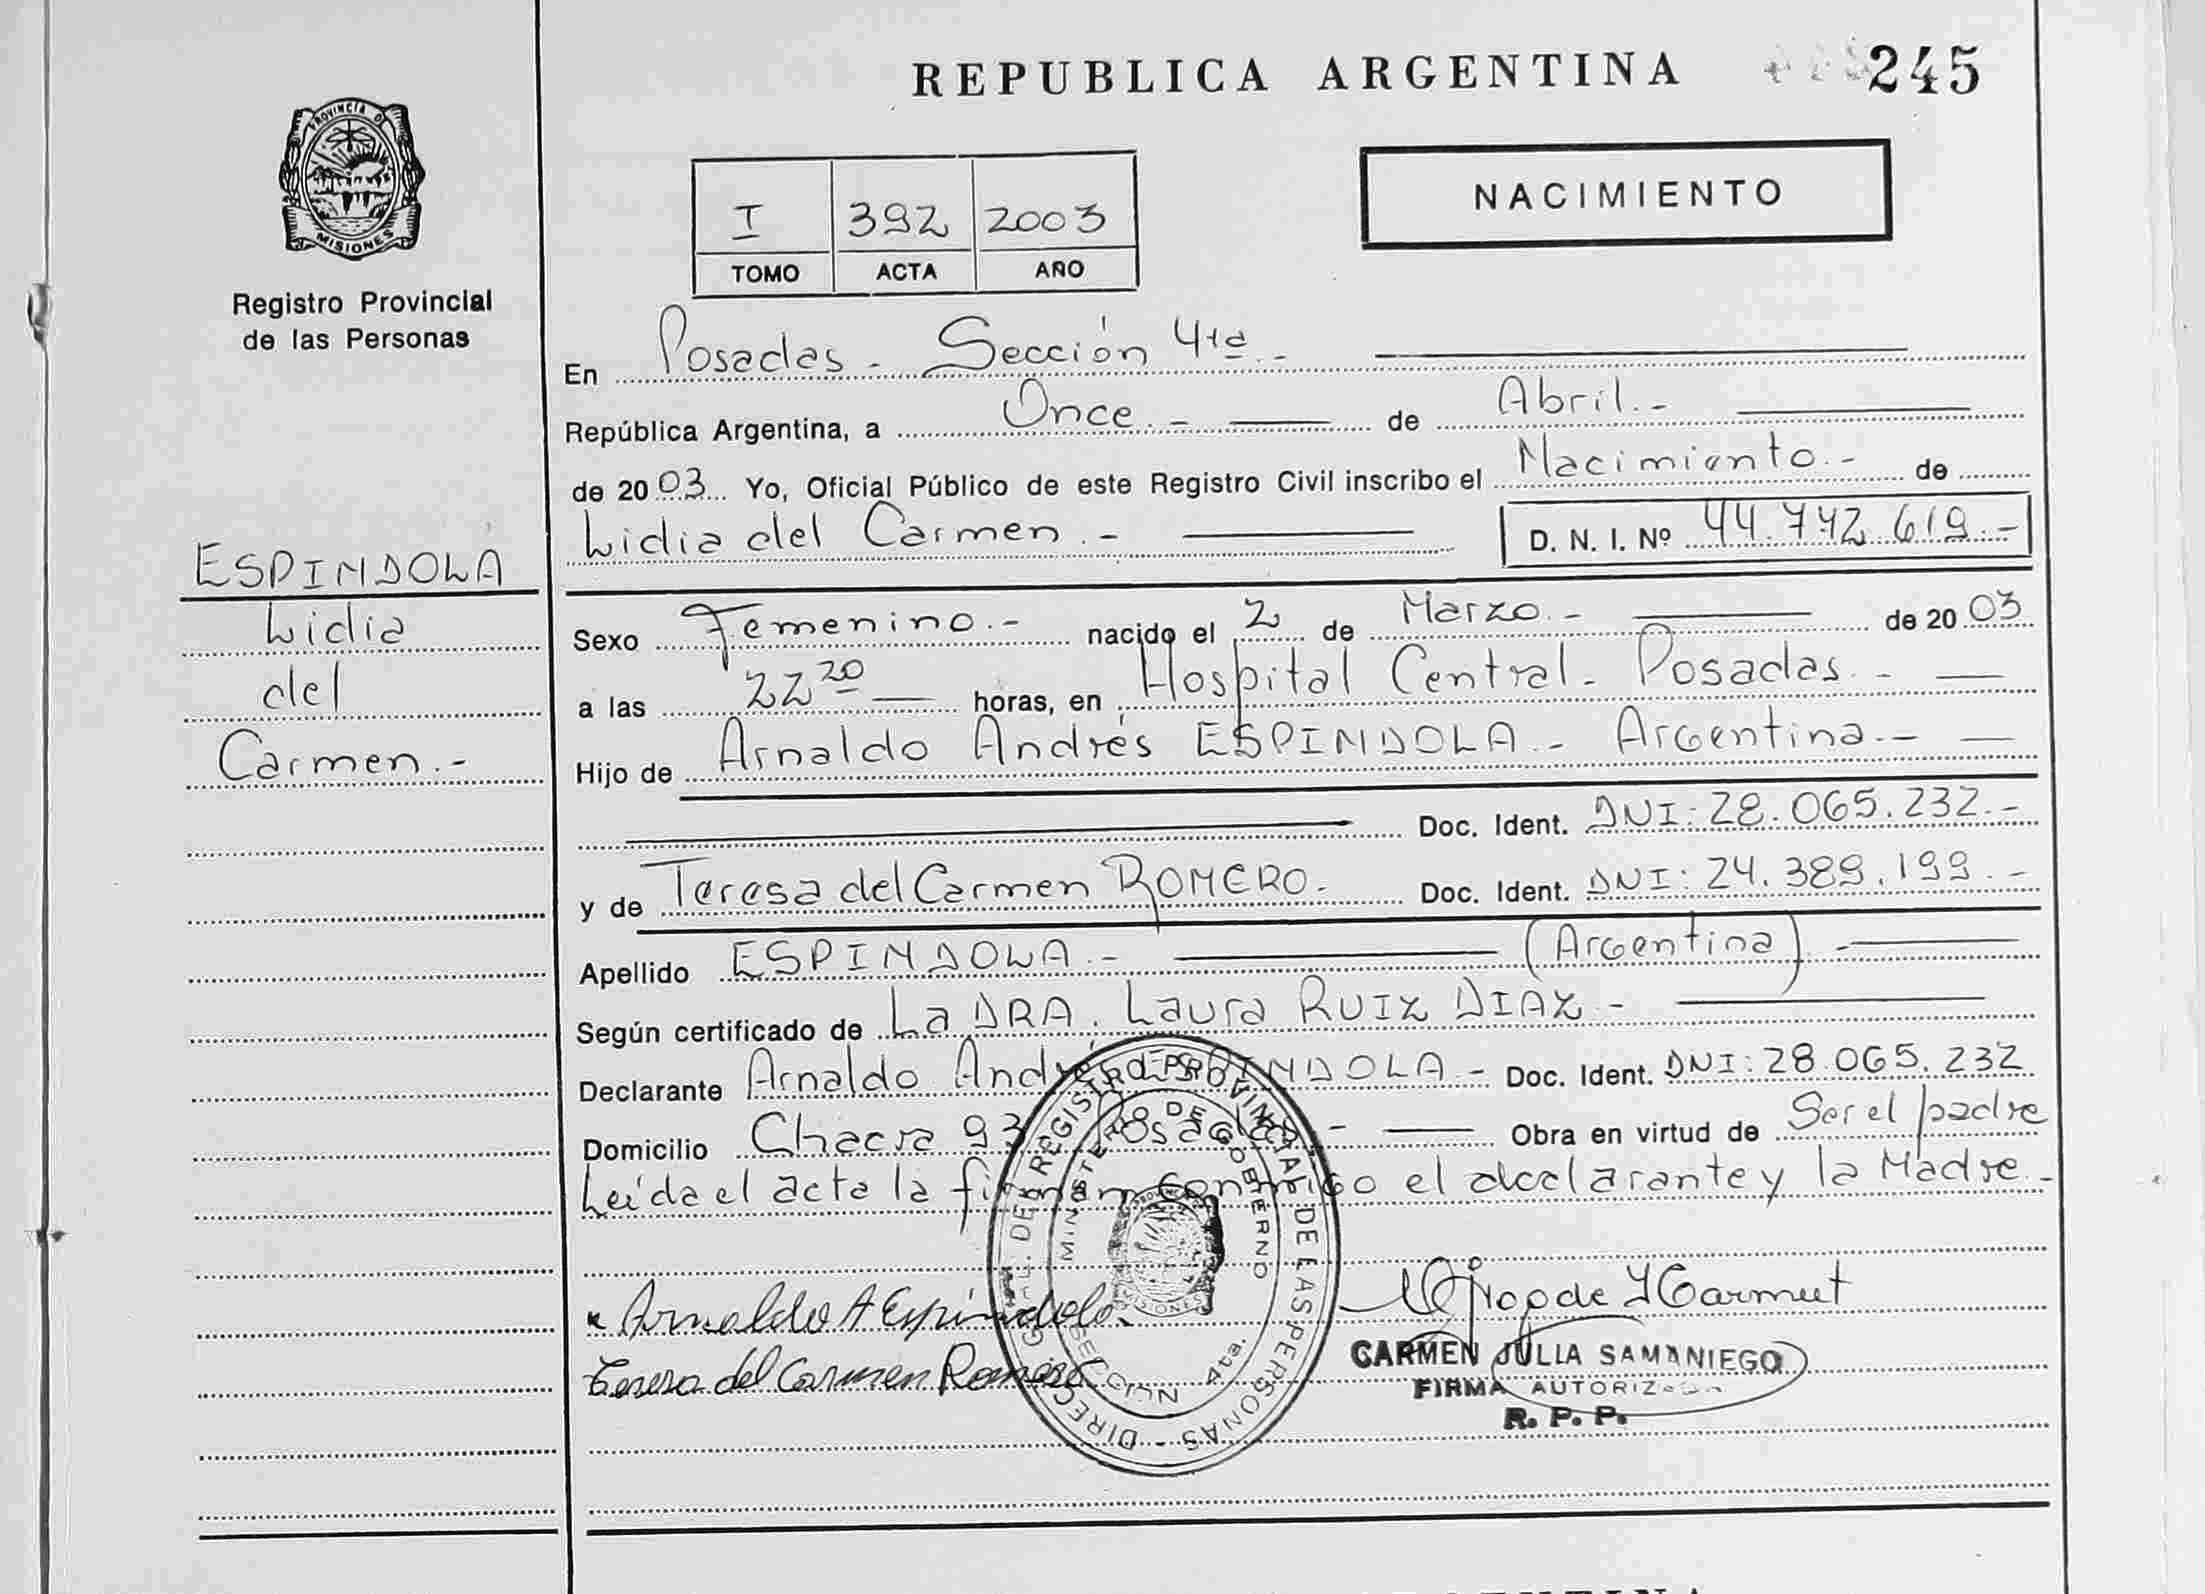 REPUBLICA ARGENTINA 245
PROVINCIA DE MISIONES
Registro Provincial
de las Personas
NACIMIENTO
I 392 2003
TOMO ACTA AÑO
En Posadas - Sección 4ta.-
República Argentina, a Once.- de Abril.-
de 2003 Yo, Oficial Público de este Registro Civil inscribo el Nacimiento.- de
Lidia del Carmen.- D. N. I. Nº 44.742.619.-
ESPINDOLA
Lidia
del
Carmen.-
Sexo Femenino.- nacido el 2 de Marzo.- de 2003
a las 22 20 horas, en Hospital Central - Posadas.-
Hijo de Arnaldo Andrés ESPINDOLA.- Argentina.-
Doc. Ident. DNI: 28.065.232.-
y de Teresa del Carmen ROMERO.- Doc. Ident. DNI: 24.389.199.-
Apellido ESPINDOLA.- (Argentina).-
Según certificado de La DRA. Laura RUIZ DIAZ.-
Declarante Arnaldo Andrés ESPINDOLA.- Doc. Ident. DNI: 28.065.232
Domicilio Chacra 93 Posadas.- Obra en virtud de Ser el padre
Leída el acta la firman conmigo el declarante y la Madre.-
Arnaldo A Espindola
Teresa del Carmen Romero
DIRECC. GRAL. DEL REGISTRO PROVINCIAL DE LAS PERSONAS
MINISTERIO DE GOBIERNO
SECCION 4ta.
CARMEN JULIA SAMANIEGO
FIRMA AUTORIZADA
R. P. P.